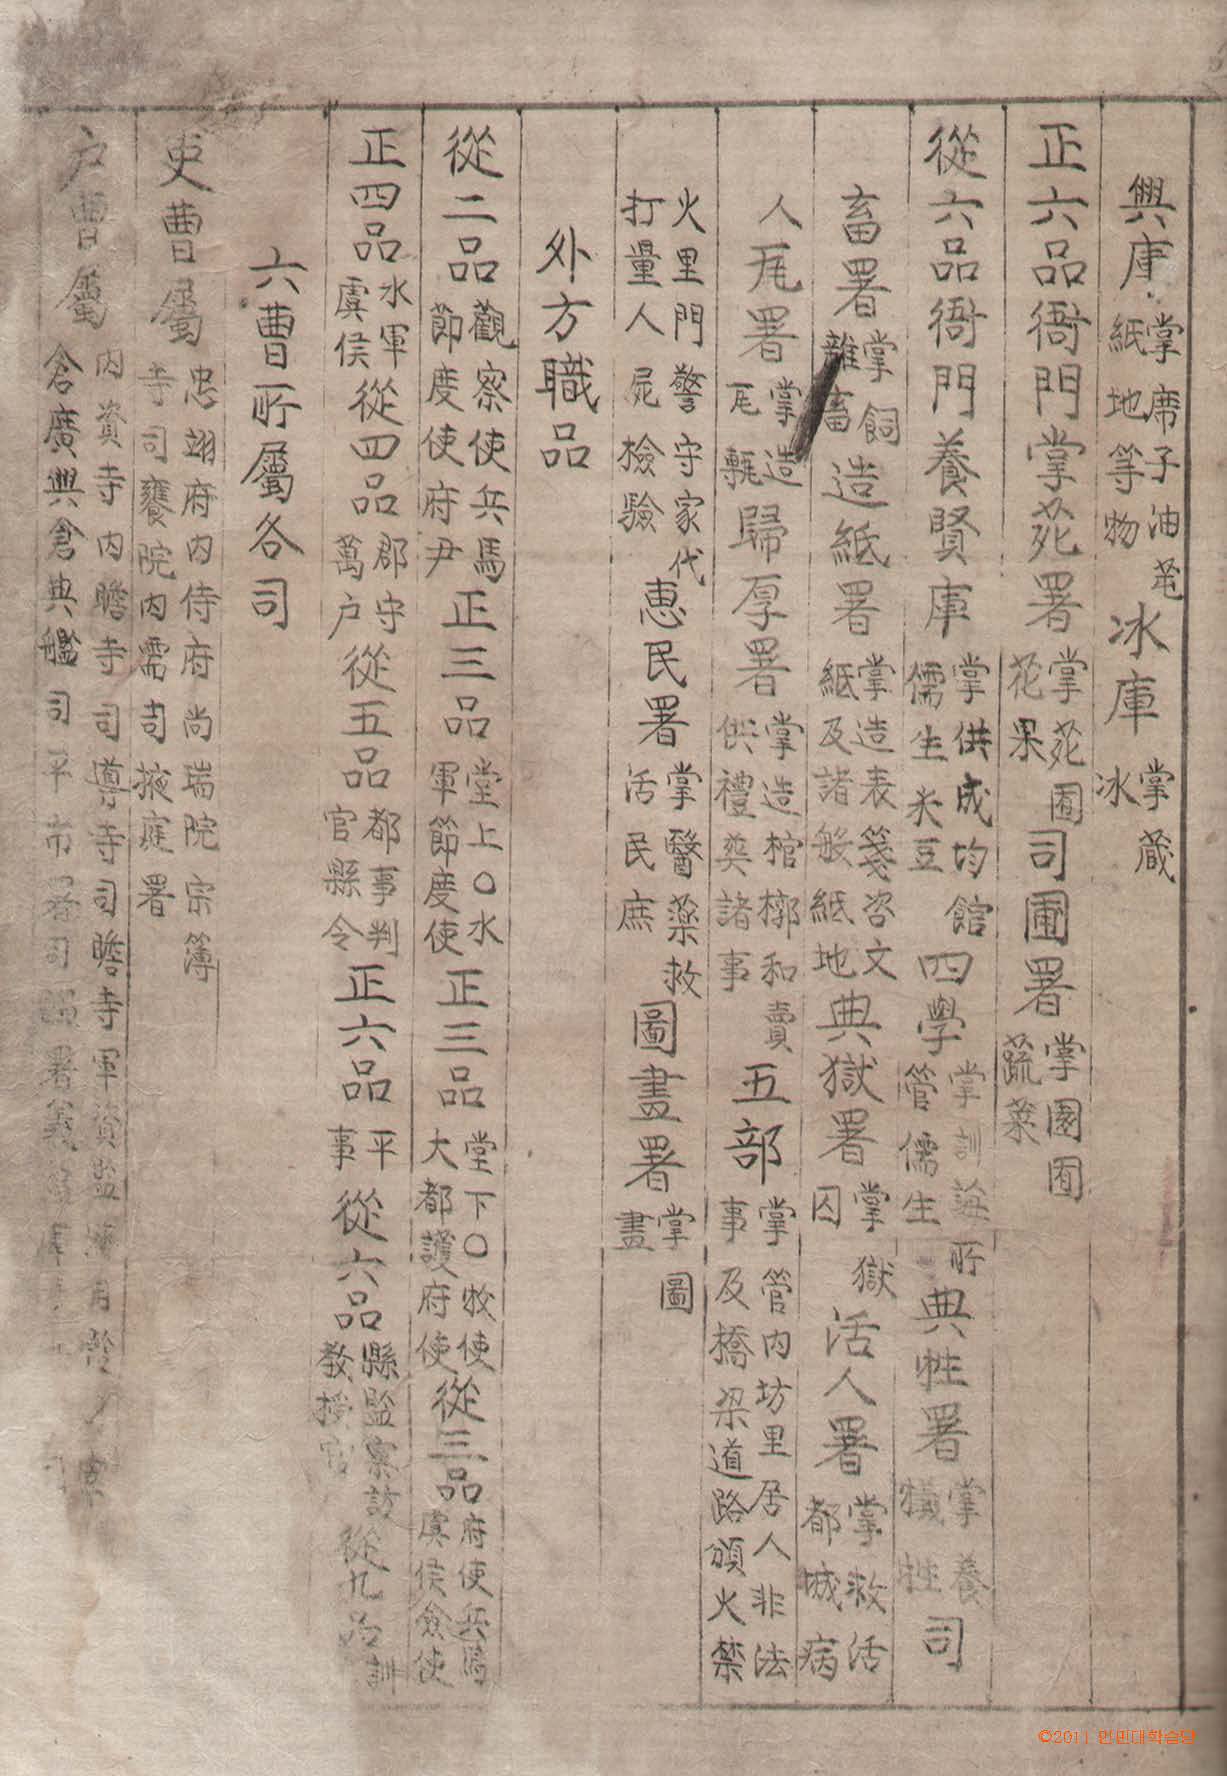 興庫掌席子油芚紙地等物冰庫掌藏冰
正六品衙門掌苑署掌苑囿花果司圃署掌園囿蔬菜
從六品衙門養賢庫掌供成均館儒生米豆四學掌訓誨所管儒生典牲署掌養犧牲司
畜署掌飼雜畜造紙署掌造表箋咨文紙及諸般紙地典獄署掌獄囚活人署掌救活都城病
人瓦署掌造瓦甎歸厚署掌造棺槨和賣供禮葬諸事五部掌管內坊里居人非法事及橋梁道路頒火禁
火里門警守家代打量人屍檢驗惠民署掌醫藥救活民庶圖畫署掌圖畫
外方職品
從二品觀察使兵馬節度使府尹正三品堂上○水軍節度使正三品堂下○牧使大都護府使從三品府使兵馬虞侯僉使
正四品水軍虞侯從四品郡守萬户從五品都事判官縣令正六品平事從六品縣監察訪教授官從九品訓
六曹所屬各司
吏曹屬忠翊府內侍府尚瑞院宗簿寺司饔院內需司掖庭署
户曹屬內資寺內贍寺司導寺司贍寺軍資監倉廣興倉典艦司平市署司醞署義
©2011 인민대학습당